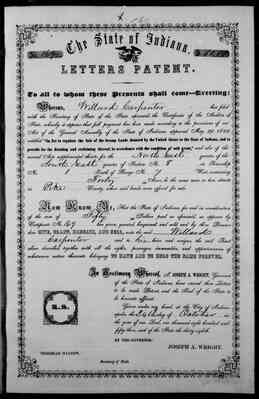 The State of Indiana.
LETTERS PATENT.
To all to whom these Presents shall come—Greeting:
Whereas, Willard Carpenter has filed
with the Secretary of State of the State aforesaid, the Certificate of the Auditor of
State, whereby it appears that full payment has been made according to the provisions of an
Act of the General Assembly of the State of Indiana, approved May 29, 1852,
entitled "An Act to regulate the Sale of the Swamp Lands donated by the United States to the State of Indiana, and to
provide for the draining and reclaiming thereof in accordance with the condition of said grant," and also of the
several Acts supplemental thereto, for the North East quarter of the
South East quarter of Section No. 8 in Township
South of Range No. 7 West containing
Forty Acres, in the same more or less, situate
in Pike County, when said lands were offered for sale.
Now Know Ye, That the State of Indiana, in consideration
of the sum of Fifty Dollars, paid as aforesaid, as appears by
Certificate No. 69 has given, granted, bargained and sold, and by these Presents
doth GIVE, GRANT, BARGAIN, AND SELL, unto the said Willard
Carpenter and to his heirs and assigns, the said Tract
above described, together with all the rights, privileges, immunities, and appurtenances of
whatsoever nature thereunto belonging, TO HAVE AND TO HOLD THE SAME FOREVER.
In Testimony Whereof, I, JOSEPH A. WRIGHT, Governor
of the State of Indiana, have caused these Letters
to be made Patent, and the Seal of the State to
be hereunto affixed.
L. S.
Given under my hand, at the City of Indian-
apolis, the day of October in
the year of our Lord, one thousand eight hundred and
fifty three, and of the State the thirty eighth.
BY THE GOVERNOR:
JOSEPH A. WRIGHT.
Secretary of State.